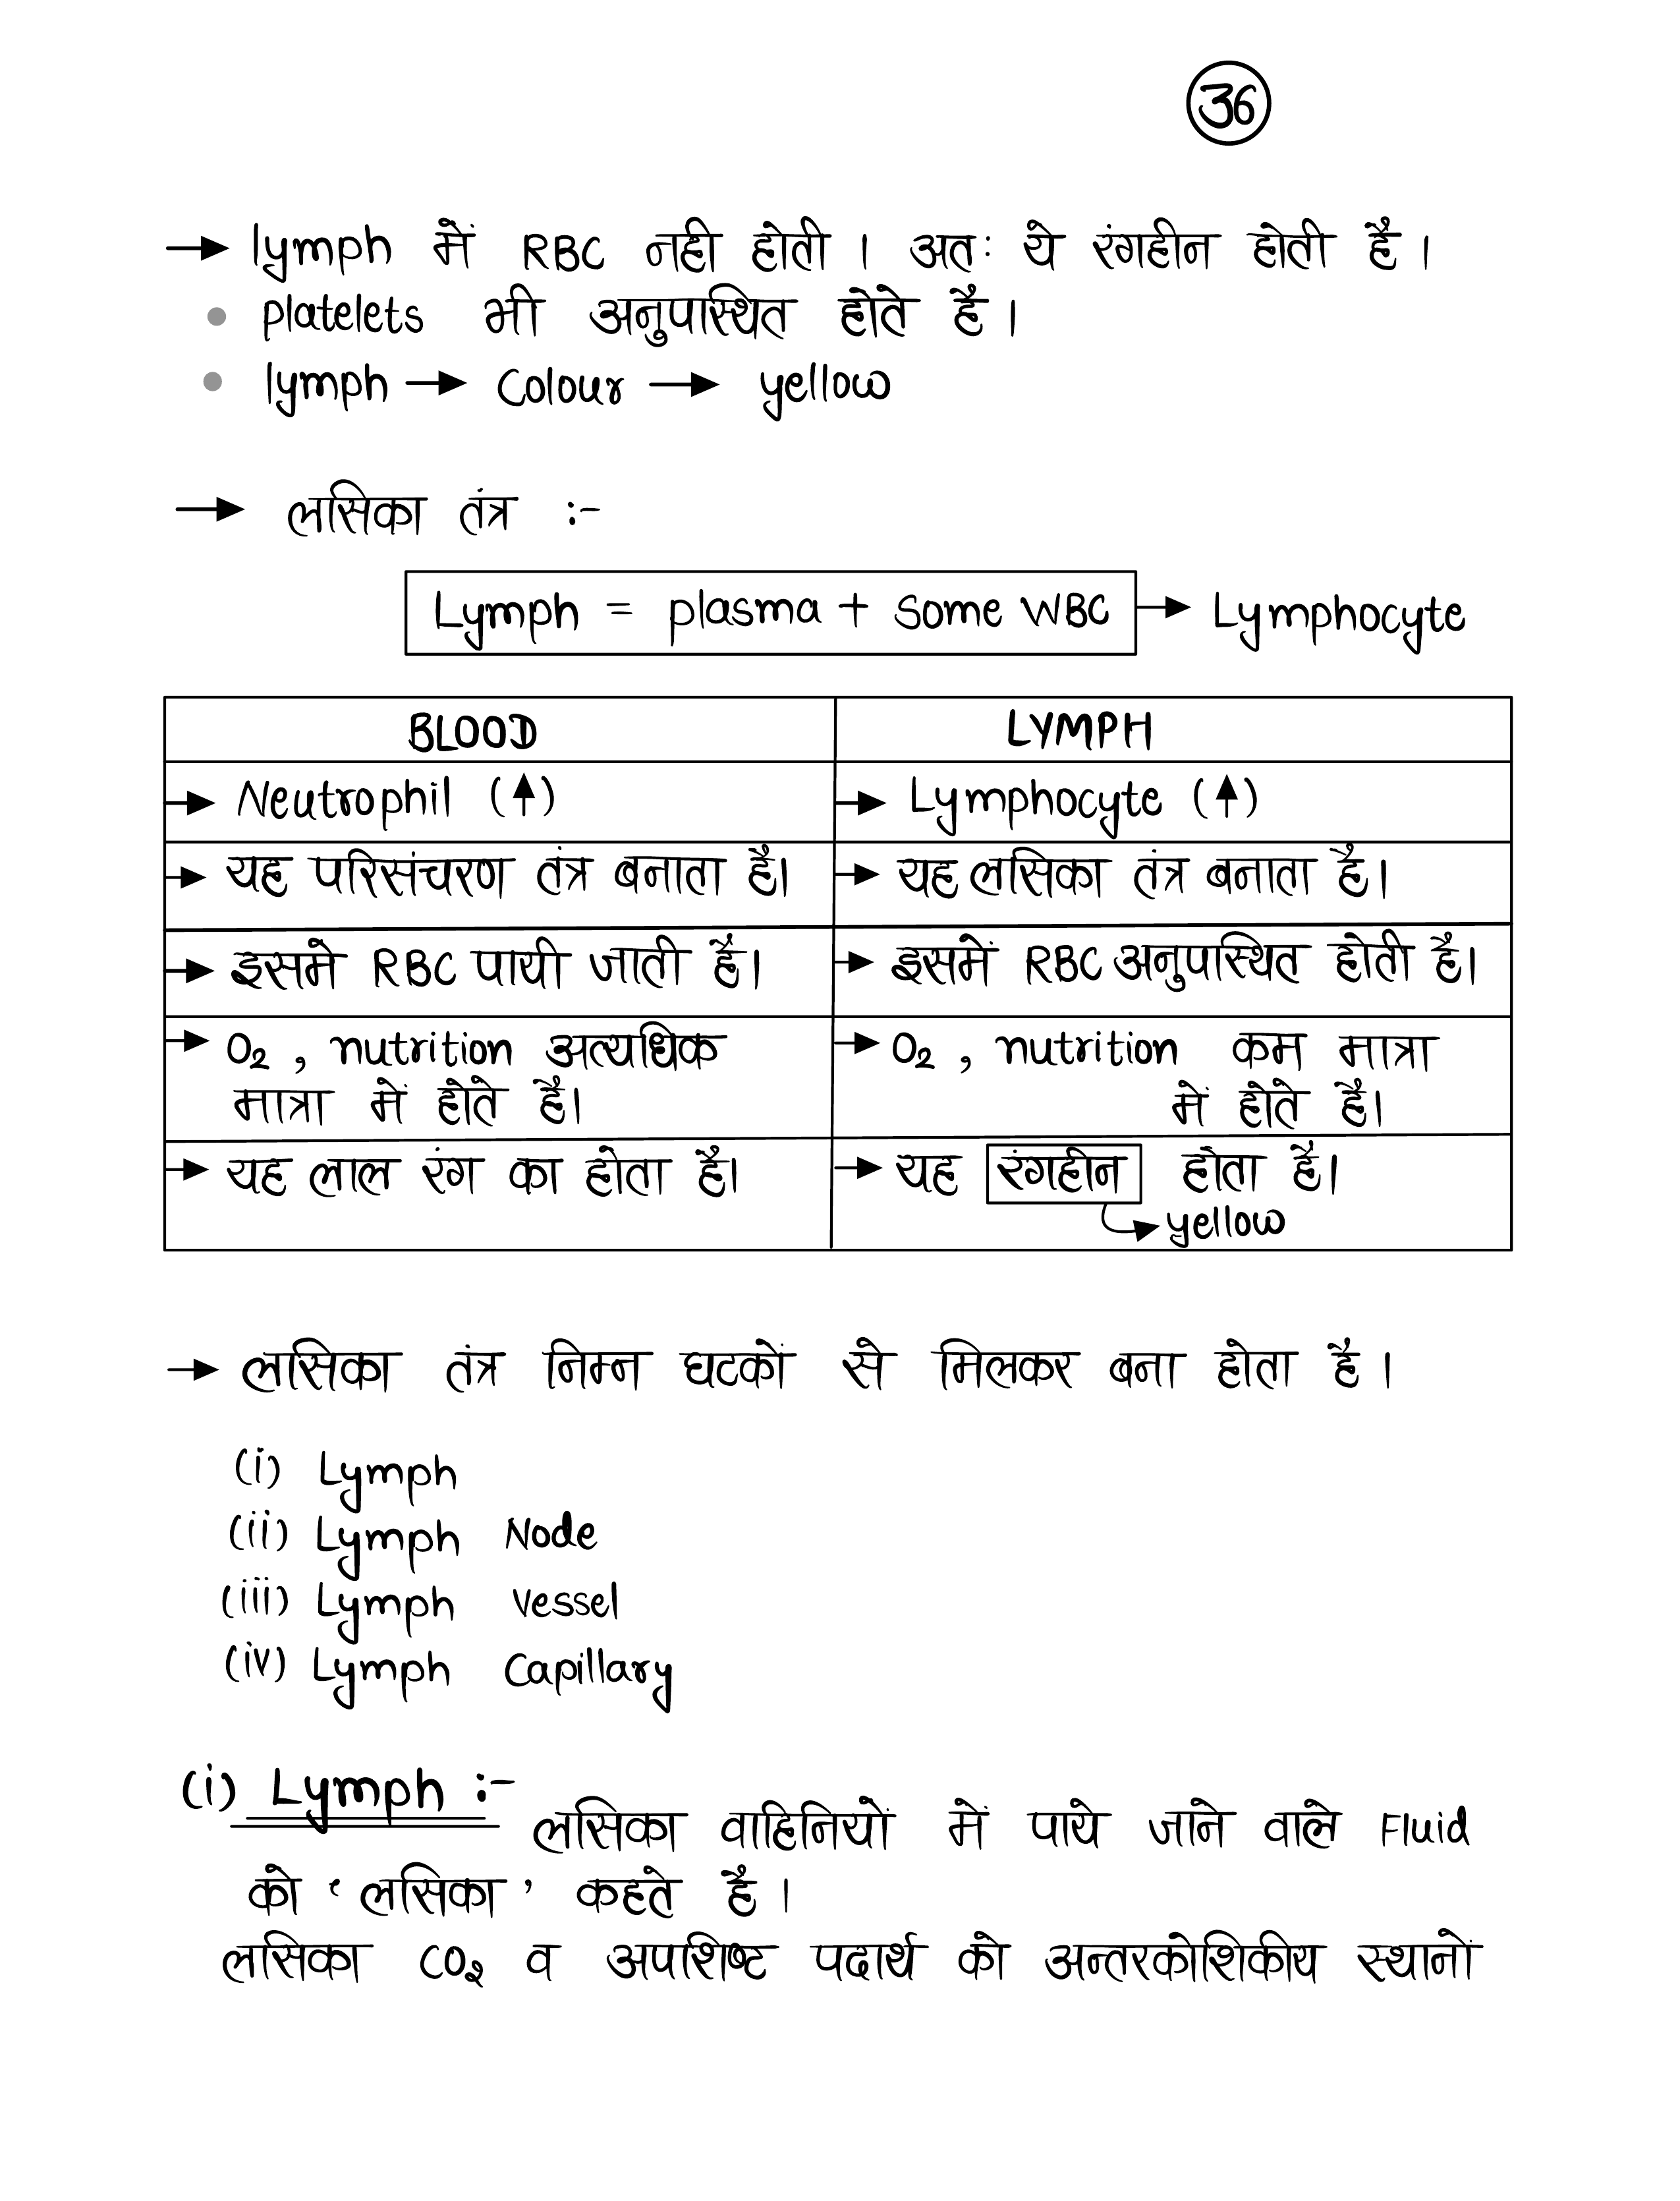 36
→ lymph में RBC नही होती । अतः ये रंगहीन होती है ।
• platelets भी अनुपास्थित होते है ।
• lymph → Colour → yellow
→ लसिका तंत्र :-
Lymph = plasma + Some WBC → Lymphocyte
BLOOD LYMPH
→ Neutrophil (↑) → Lymphocyte (↑)
→ यह परिसंचरण तंत्र बनाता है। → यह लसिका तंत्र बनाता है।
→ इसमे RBC पायी जाती है। → इसमें RBC अनुपास्थित होती है।
→ O₂ , nutrition अत्यधिक → O₂ , nutrition कम मात्रा
मात्रा में होते है। में होते है।
→ यह लाल रंग का होता है। → यह रंगहीन होता है।
yellow
→ लसिका तंत्र निम्न घटकों से मिलकर बना होता है ।
(i) Lymph
(ii) Lymph Node
(iii) Lymph Vessel
(iv) Lymph Capillary
(i) Lymph :-
लसिका वाहिनियों में पाये जाने वाले Fluid
को ‘ लसिका ’ कहते है ।
लसिका CO₂ व अपशिष्ट पदार्थ को अन्तरकोशिकीय स्थानों